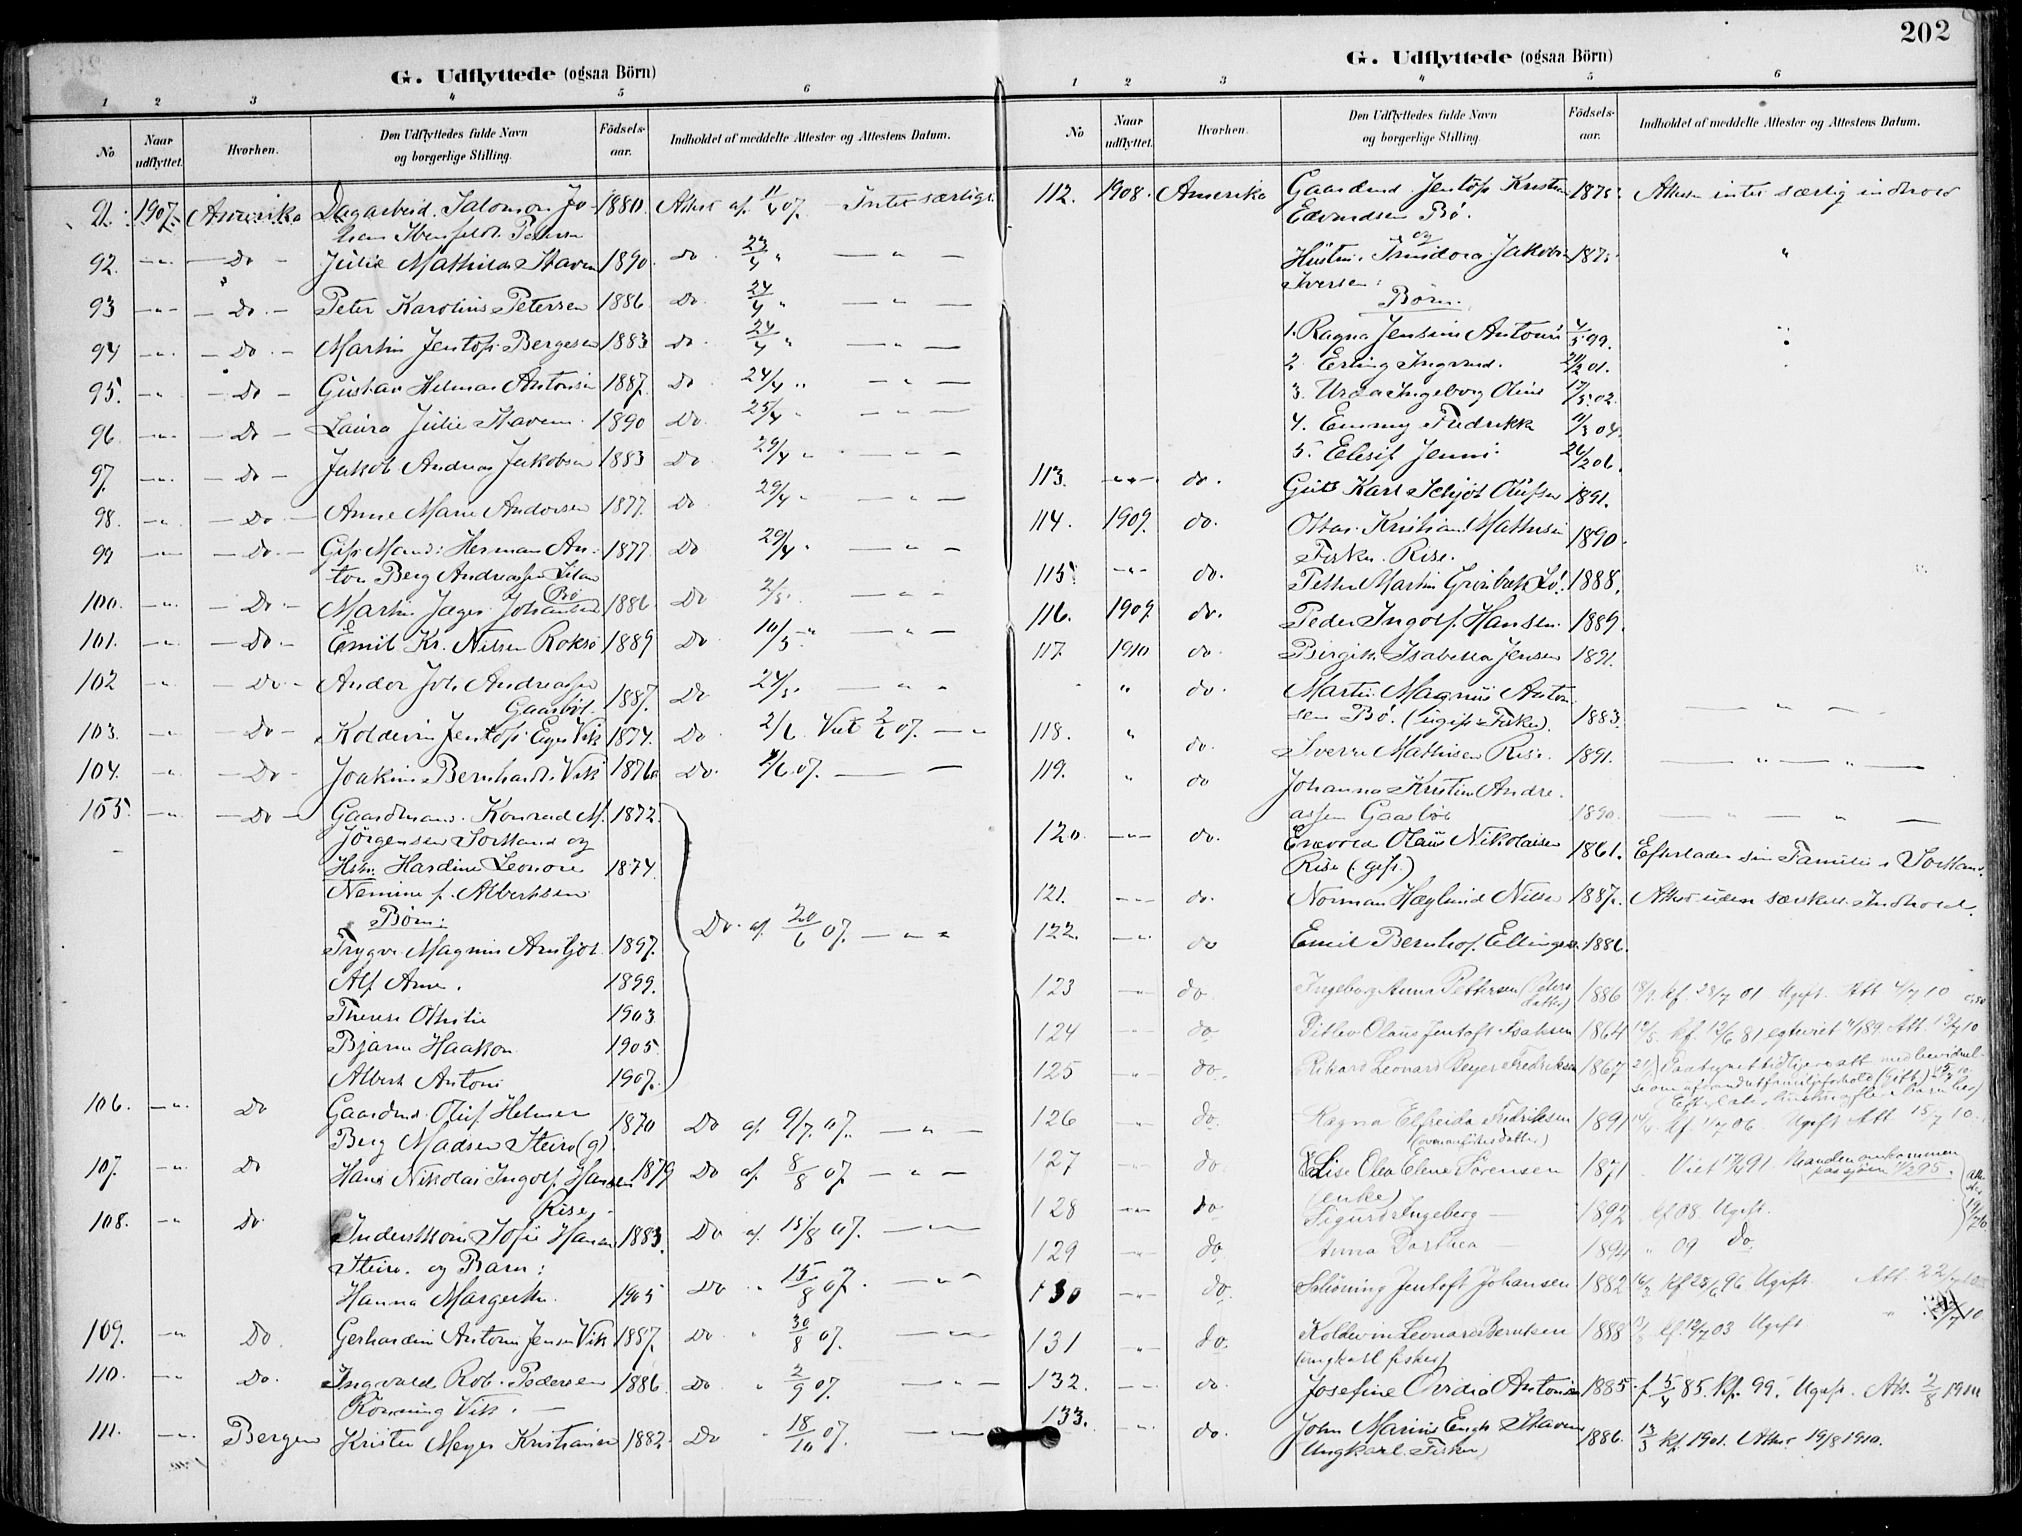 202
G. Udflyttede (ogsaa Börn)
1 2 3 4 5 6
No Naar udflyttet. Hvorhen. Den Udflyttedes fulde Navn og borgerlige Stilling. Födsels-aar. Indholdet af meddelte Attester og Attestens Datum.
91. 1907. Amerika Dagarbeid. Salomon Jo- 1880. Attest af 11/4 07. Intet særligt
Petersen
92. -"- Do - Julie Mathilde Staven 1890. do 23/4 " — " —
93 -"- Do - Peter Karolius Petersen 1886 Do. 24/4 " — " —
94 -"- Do - Martin Jentoft Bergesen 1883 do 24/4 " — " —
95. -"- Do - Gustav Helmar Antonsen 1887. do 24/4 " — " —
96 -"- Do - Laura Julie Staven 1890 do. 25/4 " — " —
97. -"- Do - Jakob Andreas Jakobsen 1883 do 29/4 " — " —
98. -"- Do - Anne Marie Andorsen 1877. do 29/4 " — " —
99 -"- Do - Gift Mand: Herman An- 1877. Do 29/4 " — " —
ton Berg Andreassen
Bø
100. -"- Do - Martin Jæger Johansen 1886 Do 2/5. — " —
101. -"- Do - Emil Kr. Nilsen Roksø 1889 Do 10/5 " — " —
102 " Do - Andor Joh. Andreassen
Gaasbøl. 1887. Do 24/5. — " "
103. " Do - Koldevin Jentoft Vik 1874. Do 2/6. Viet 2/6 07. — "
104. " Do - Joakim Bernhard Vik 1876. Do. 4/6 07. — —
105. -"- Do - Gaardmand. Konrad M. 1872.
Jørgensen Sortland og
Hstr. Hardine Leonore 1874.
Nemine f. Albertsen
Børn:
Trygve Magnus Arnljot 1897. Do. af 20/6 07. — " "
Alf Arne. 1899.
Therese Othilie 1903
Bjarne Haakon 1905.
Albert Antoni 1907.
106. -"- Do Gaardmd. Oluf Helmer
Berg Madsen Steiro (g). 1870 Do af 9/7 07. — " —
107. -"- Do Hans Nikolai Ingolf Hansen 1879 Do af 8/8 07. — " —
Rise.
108. -" Do. Sofie Hansen 1883. Do af 15/8 07. — " —
Steiro. og Barn:
Hanna Margrethe 1905 Do " 15/8 07. — " "
109. -"- Do. Gerhardine Antonie Jensen Vik 1887. Do. " 30/8 07. — " —
110. -"- Do. Ingvald Rob. Pedersen 1886. Do " 2/9 07. — " —
Rönning Vik. —
111. -"- Bergen Krister Meyer Kristiansen 1882. Do " 18/10 07. — " —
G. Udflyttede (ogsaa Börn)
1 2 3 4 5 6
No Naar udflyttet. Hvorhen. Den Udflyttedes fulde Navn og borgerlige Stilling. Födsels-aar. Indholdet af meddelte Attester og Attestens Datum.
112. 1908. Amerika Gaardmd. Jentoft Kristian 1875. Attest intet særlig indhold
Edvardsen Bø.
og
Hustru Jakobine 187 "
Iversen:
Børn.
1. Ragna Jensine Antonie 4/5 99. "
2. Erling Ingvard. 21/2 01.
3. Ingeborg Oline 17/5 02.
4. Emmy Fredrikke 11/3 04.
5. Elesif Jenni. 26/2 06.
113. -"- do. Gut Karl Schjöt Olufsen 1891.
114. 1909. do. Kristian Mathisen 1890.
Fisker. Rise.
115. -"- do. Petter Martin Grönbæk Lø. 1888.
116. 1909. do. Peder Ingolf Hansen. 1889.
117. 1910 do. Birgith Isabella Jensen 1891.
" do. Martin Magnus Anton-
sen Bø. (ugift Fisker). 1883. — " —
118. " do. Sverre Mathisen Rise. 1891. — " — " —
119. " do Johanna Kristine Andre-
assen Gaasbøl 1890. — " — " —
120. -"- do. Enevold Olaus Nikolaisen 1861. Efterlader sin Familie i Sortland.
Rise (gift.)
121. -"- do. Norman Hæglund Nilsen 1887. Attest uden særskilt Indhold.
122. -"- do Emil Bernhof. Ellingsen. 1886.
123 -"- do Ingeborg Anna Pettersen (Peters 1886 18/9. kf. 28/7 01 Ugift. Att 4/7 10
datter)
124 -"- do Ditlev Olaus Jentoft Isaksen 1864 12/5. kf. 12/6 81 egteviet 89. Att. 13/7 10
125 " do. Rikard Leonard Beyer Fredriksen 1867
126 " do. Ragna Elfrida Fredriksen 1891 14/6. kf. 1/7 06 Ugift Att 15/7 10.
(ovenanførtes datter)
127 -"- do Lise Olea Elene Sørensen 1871 Viet 91 Manden omkommen
(enke) paa sjøen 11/2 95.
128 -"- do Sigurd Ingeberg — 1892 kf 08. Ugift.
129 -"- do Anna Dorthea — 1894 " 09 do
130 -"- do Schöning Jentoft Johansen 1882 16/3 kf 28/6 96 Ugift. Att. 22/7 10
131 " do. Koldevin Leonard Berntsen 1888 kf. 12/7 03 Ugift "
(ungkarl fisker)
132. -"- do. Josefine Ovidia Antonsen 1885. f. 5/4 85. Kf. 99. Ugift. Att. 2/8 1910
133. -"- do. John Marius Engh Staven
Ungkarl. Fisker) 1886. 13/3 kf. 1901. Attest 19/8 1910.